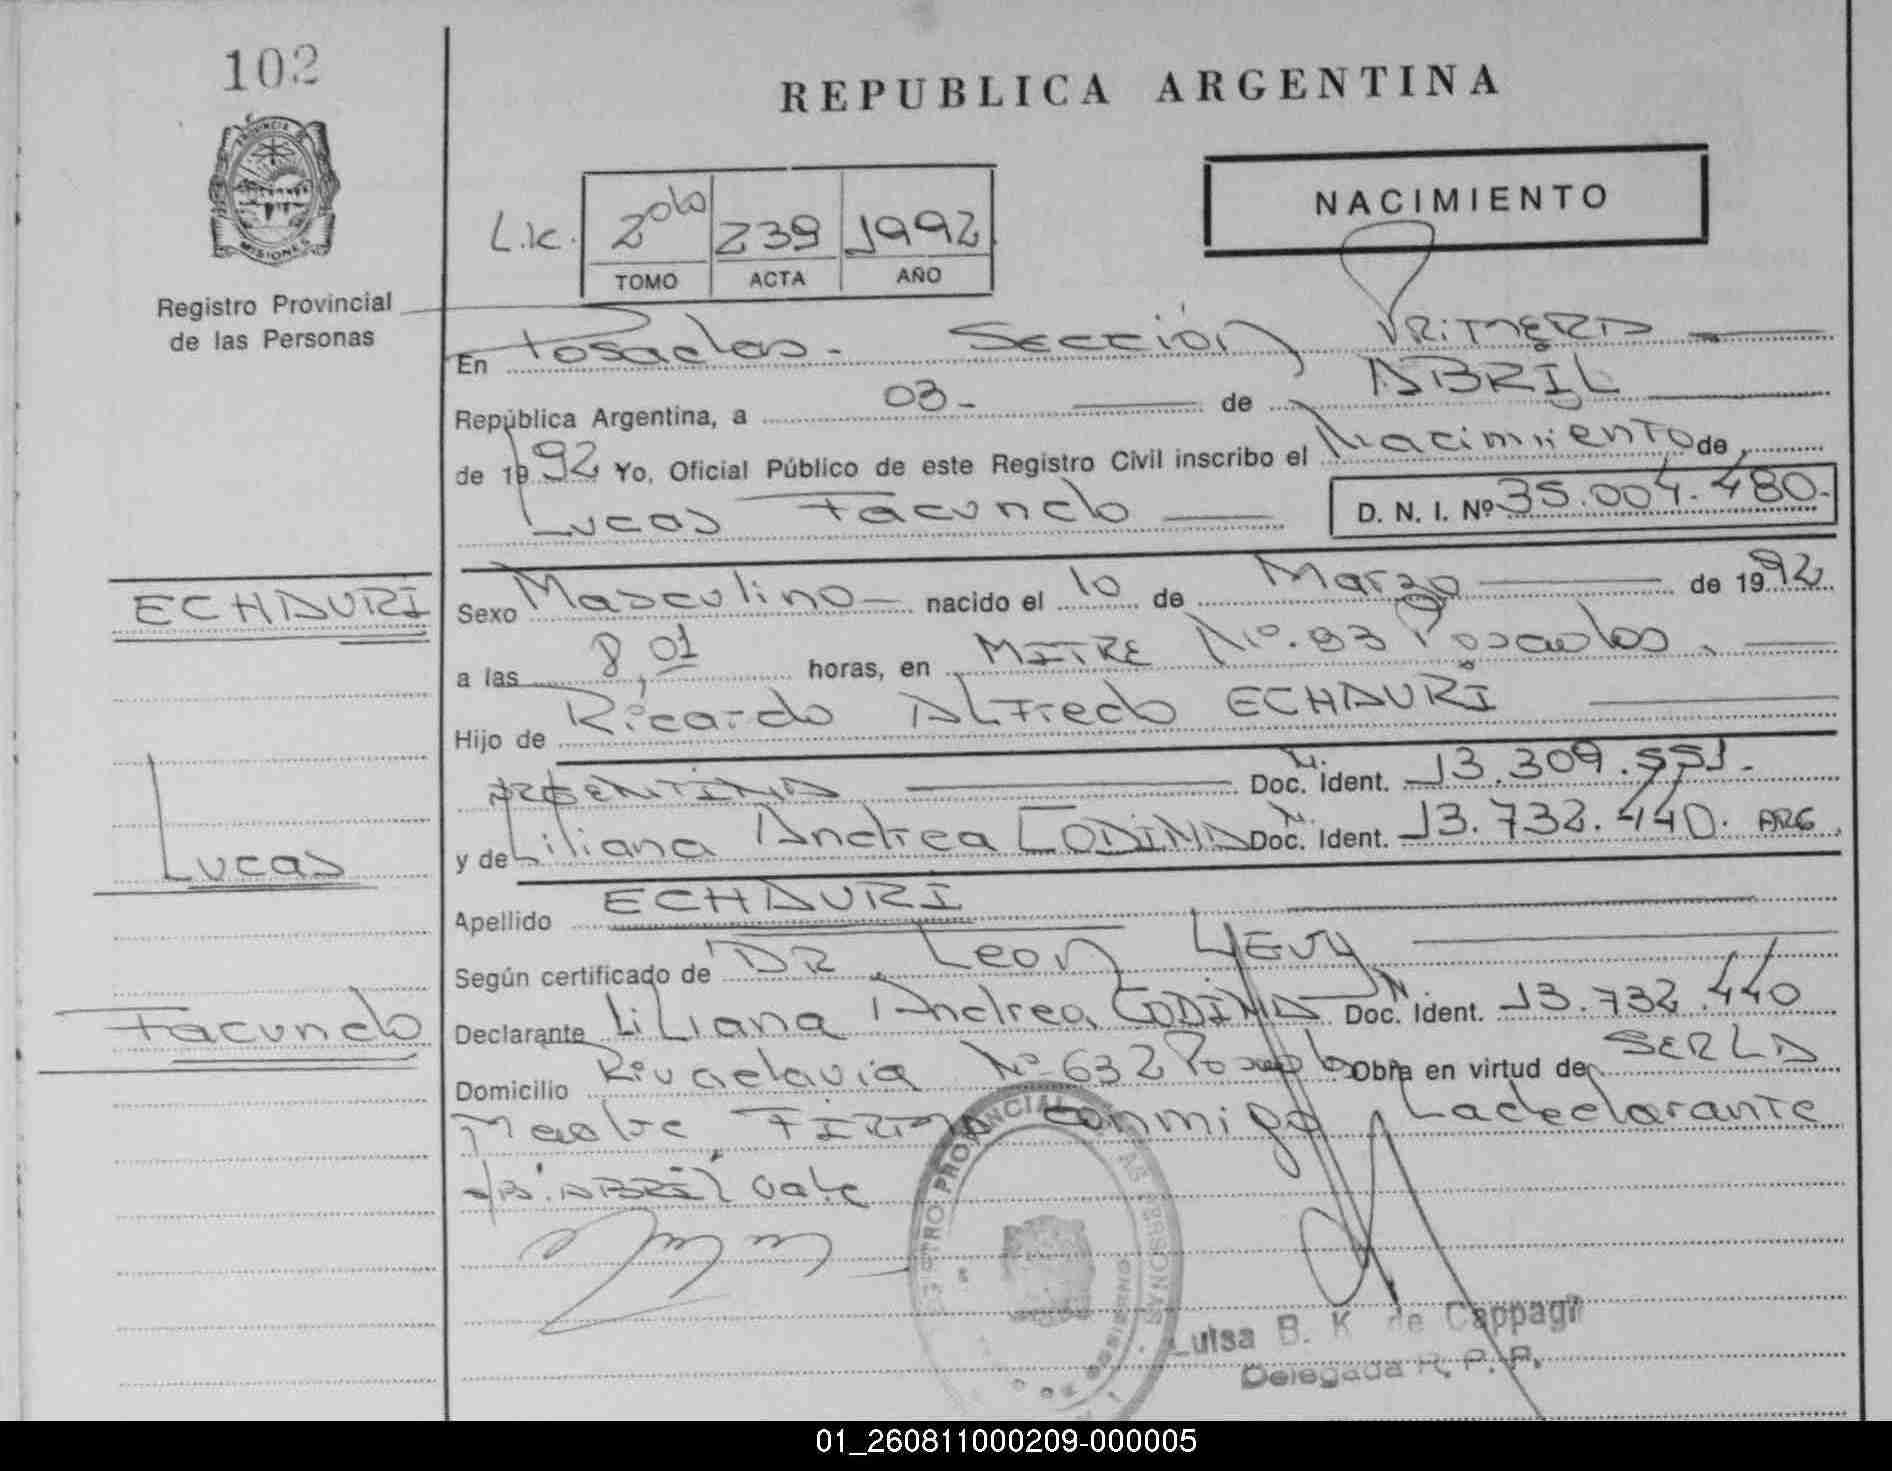 102
REPUBLICA ARGENTINA
PROVINCIA DE
MISIONES
Registro Provincial
de las Personas
NACIMIENTO
Lic. 2do 239 1992
TOMO ACTA AÑO
En Posadas - Sección PRIMERA
República Argentina, a 03 - de ABRIL
de 1992 Yo, Oficial Público de este Registro Civil inscribo el Nacimiento de
Lucas Facundo D. N. I. Nº 35.004.480.-
ECHAURI
Sexo Masculino - nacido el 10 de Marzo de 1992
a las 8,01 horas, en MITRE Nº. 93 Posadas.
Hijo de Ricardo ALFredo ECHAURI
ARGENTINA Doc. N. Ident. 13.309.551.-
Lucas
y de Liliana Andrea CODINA Doc. N. Ident. 13.732.440. ARG.
Apellido ECHAURI
Según certificado de DR. Leon LIEVY
Facundo
Declarante LiLiana Andrea CODINA Doc. N. Ident. 13.732.440
Domicilio Rivadavia Nº 632 Posadas Obra en virtud de SER LA
Madre FIRMA conmigo La declarante
ABRIL Vale
REGISTRO PROVINCIAL DE LAS PERSONAS
Luisa B. K. de Cappagli
Delegada R. P. P.
01_260811000209-000005